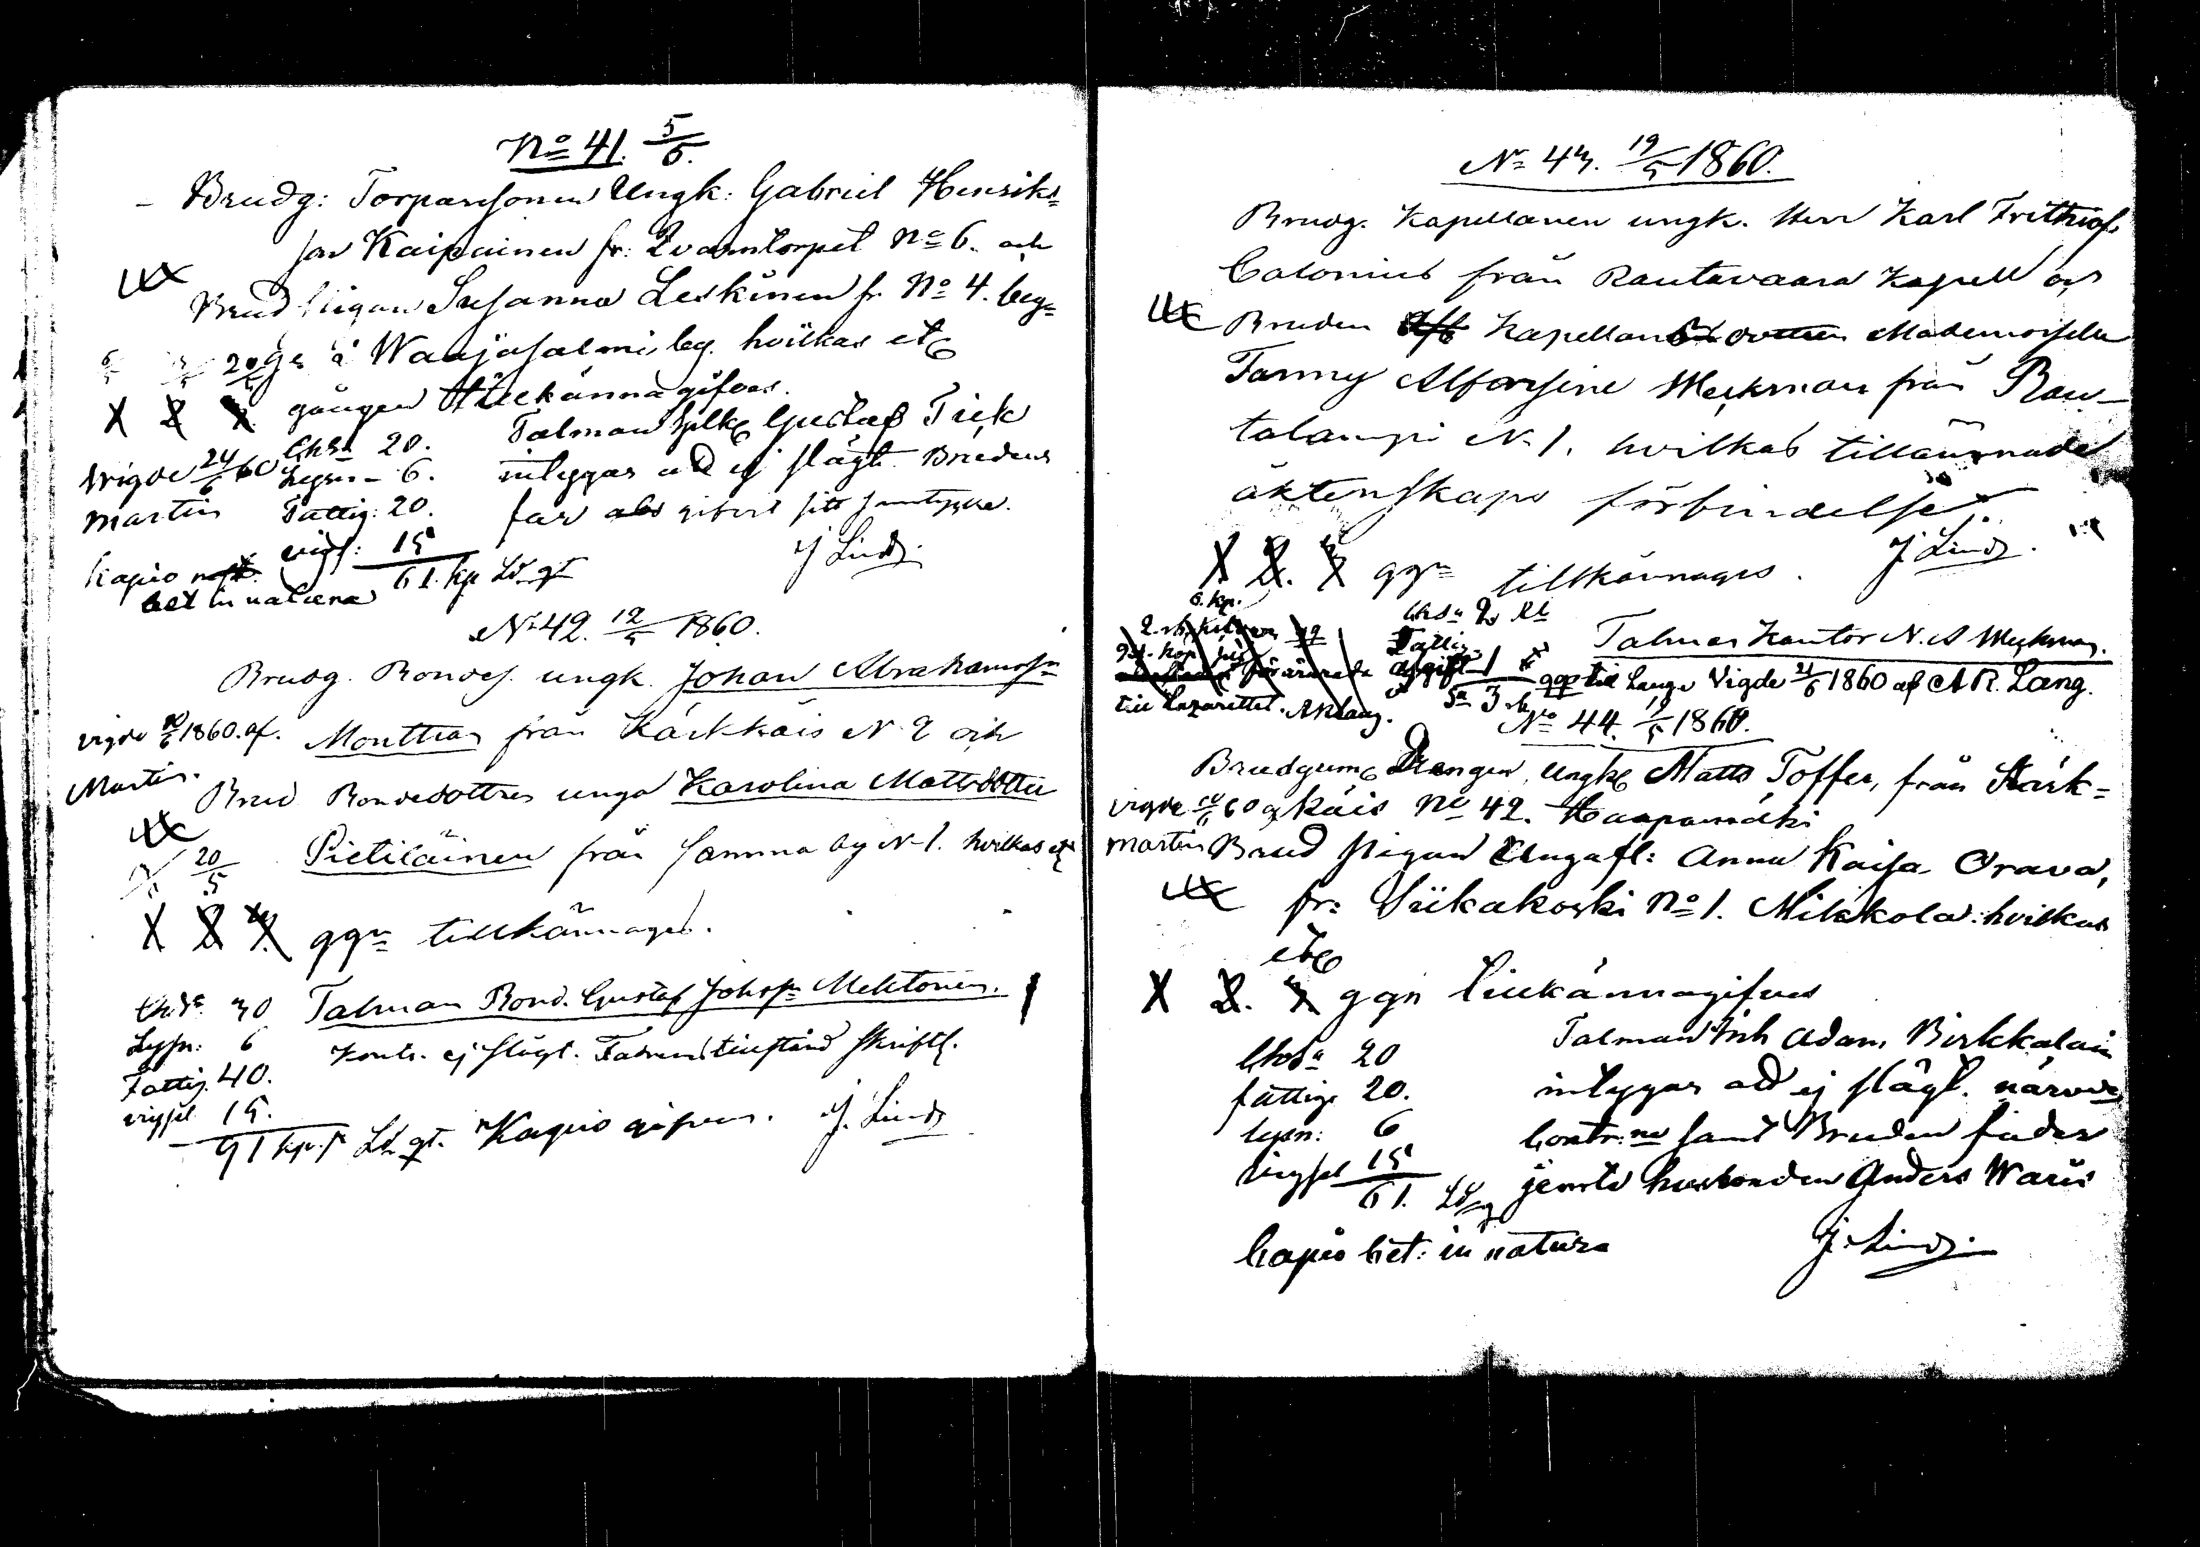 No 41. 5/5.
Brudg: Torparesonen Ungk: Gabriel Henriks=
son Kaipainen fr: Qvarntorpet No 6. och
Brud Pigan Susanna Leskinen fr. No 4. beg=
ge å Waajasalmi beg. hvilkas etc
gången tillkännagifvas.
Chsa 20.
Lysn - 6.
Fattig: 20.
vigs: 15
61. kp
Talman Gustaf Tick
intygar att ej slägt. Brudens
far gifvit sitt samtycke.
J Lind
vigde 24/6 60
Martin
Kapio
bet in natura
No 42. 12/5 1860.
Brudg. Bondes. ungk. Johan Abrahamsn
Monttran från Kärkkäis N 2 och
Brud Bondedottren unga Karolina Mattsdotter
Pietiläinen från samma by N 1. hvilkas etc
vigde 10/6 1860. af.
Martin.
20/5
1 2 3 ggn tillkännages.
Chsa 30
Lysn: 6
Fattig. 40.
vigsel 15.
91 kp.
Talman Bond. Gustaf Johsn Mehtonen.
Kontr. ej slägt. Fadrens tillstånd skriftl.
Kapio gifven. J. Lind
No 43. 19/5 1860.
Brudg. Kapellanen ungk. Herr Karl Frithiof
Calonius från Rautavaara Kapell och
Bruden Kapellans dottren Mademoiselle
Fanny Alfonsine Meckman från Rau-
talampi N 1. hvilkas tillärnade
äktenskaps förbindelse
1 2. 3 ggn tillkännages. J Lind.
6. kp.
till Lazarettet. A R Lang.
Chsa 2 Rb
Fattig
afgift 1
Sa 3
Talman Kantor N. A Meckman.
Vigde 21/6 1860 af A R. Lang.
No 44. 19/5 1860.
Brudgum Drengen, Ungk Matts Toffer, från Kärk=
käis No 42. Haapamäki
Brud Pigan Unga fl: Anna Kaisa Orava,
fr: Siikakoski No 1. Mikkola: hvilkas
etc
vigde 10/6 60 af
Martin
1 2. 3 ggn tillkännagifves
Chsa 20
fattig 20.
lysn: 6
Vigsel 15
61.
Talman Inh Adam Birkkalain
intygar att ej slägt.
Contr:ne samt Bruden fader
jemte husbonden Anders Waris
Capio bet: in natura J. Lind.